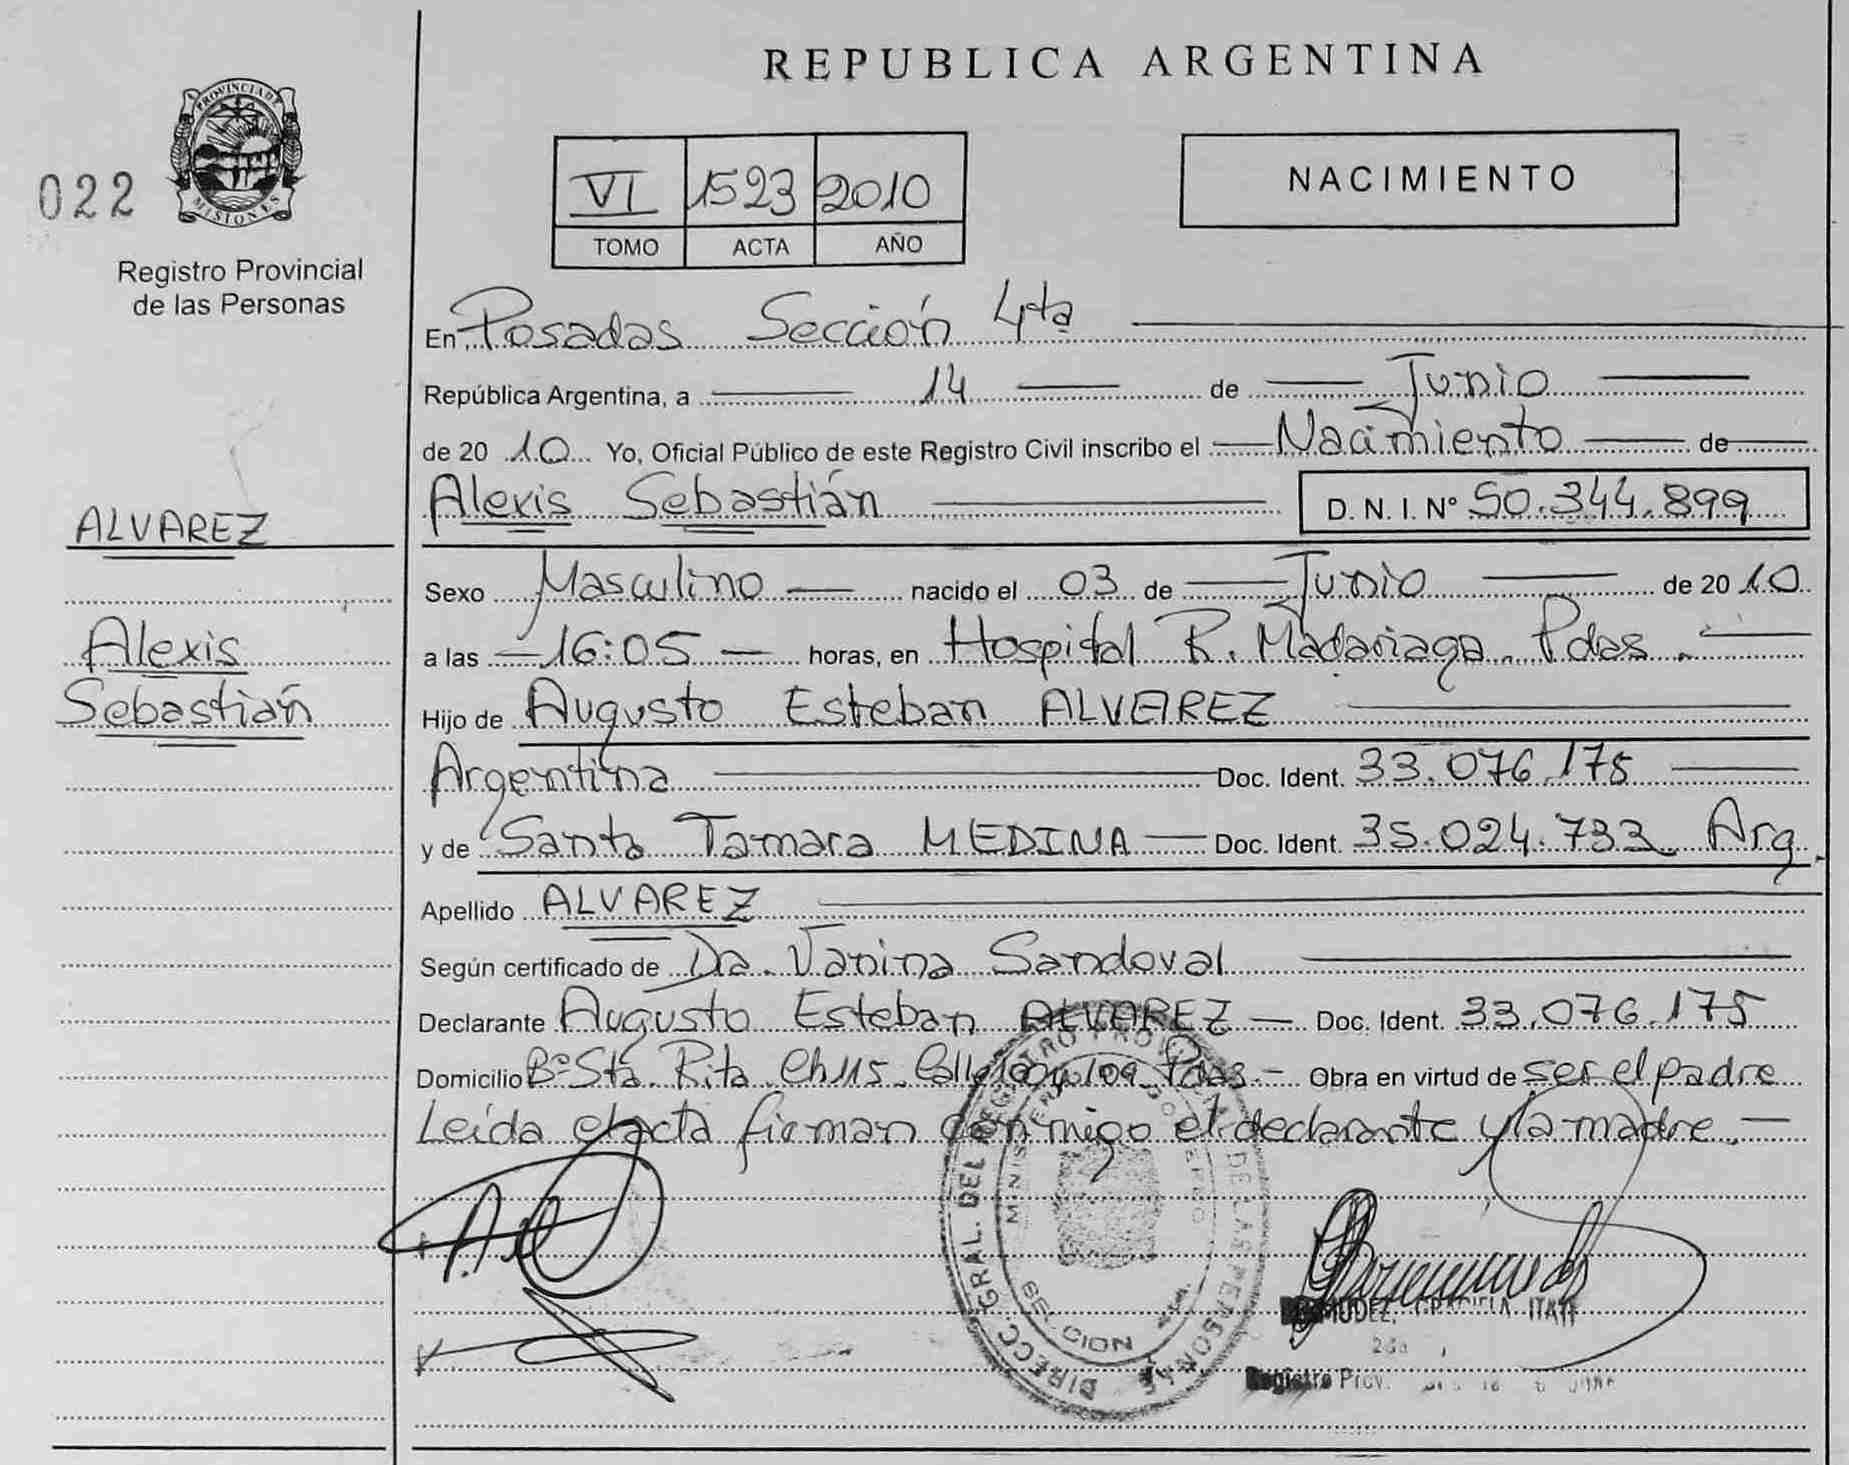 REPUBLICA ARGENTINA
PROVINCIA DE
MISIONES
022
Registro Provincial
de las Personas
VI 1523 2010
TOMO ACTA AÑO
NACIMIENTO
En Posadas Sección 4ta
República Argentina, a 14 de Junio
de 20 10 Yo, Oficial Público de este Registro Civil inscribo el Nacimiento de
Alexis Sebastián D. N. I. Nº 50.344.899
ALVAREZ
Alexis
Sebastián
Sexo Masculino nacido el 03 de Junio de 20 10
a las 16:05 horas, en Hospital R. Madariaga Pdas.
Hijo de Augusto Esteban ALVAREZ
Argentina Doc. Ident. 33.076.175
y de Santa Tamara MEDINA Doc. Ident. 35.024.733 Arg.
Apellido ALVAREZ
Según certificado de Dra. Vanina Sandoval
Declarante Augusto Esteban ALVAREZ Doc. Ident. 33.076.175
Domicilio Bº Sta. Rita Ch 115 Pdas.- Obra en virtud de ser el padre
Leída el acta firman conmigo el declarante y la madre.-
DIRECC. GRAL. DEL REGISTRO PROVINCIAL DE LAS PERSONAS
GRACIELA ITATI
Registro Prov.